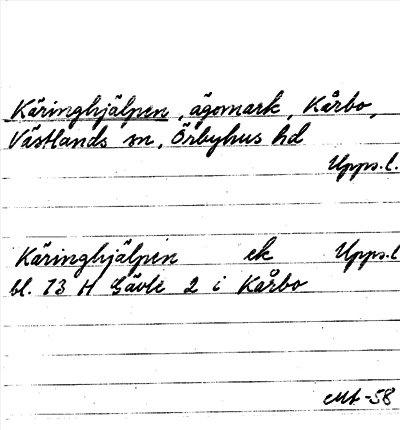 Käringhjälpen, ägomark, Kårbo,
Västlands sn, Örbyhus hd
Upps.l.
Käringhjälpen ek Upps.l
bl. 13 H Gävle 2 i Kårbo
-58